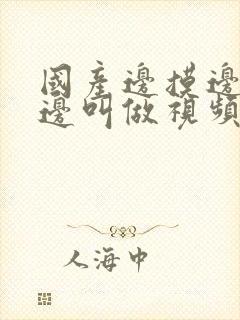 國產邊摸邊
邊叫做視頻
人海中